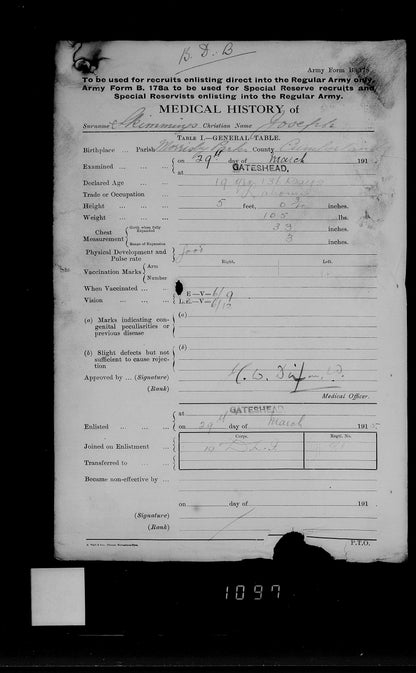 B. D. B
Army Form B. 178
To be used for recruits enlisting direct into the Regular Army only.
Army Form B. 178a to be used for Special Reserve recruits and
Special Reservists enlisting into the Regular Army.
MEDICAL HISTORY of
Surname Skimmings Christian Name Joseph
TABLE I.—GENERAL TABLE.
Birthplace ... Parish County
Examined ... on 29th day of March 191
at GATESHEAD.
Declared Age 19 yrs 131 days
Trade or Occupation Labourer
Height 5 feet, 0 inches.
Weight 105 lbs.
Chest Measurement Girth when fully Expanded 33 inches.
Range of Expansion 3 inches.
Physical Development and Pulse rate Good
Right. Left.
Vaccination Marks Arm
Number
When Vaccinated
Vision R.E.—V—6/9
L.E.—V—6/12
(a) Marks indicating congenital peculiarities or previous disease (a)
(b) Slight defects but not sufficient to cause rejection (b)
Approved by ... (Signature)
(Rank)
Medical Officer.
at GATESHEAD
Enlisted on 29th day of March 1915
Corps. Regtl. No.
Joined on Enlistment
Transferred to
Became non-effective by
on day of 191
(Signature)
(Rank)
P.T.O.
1097